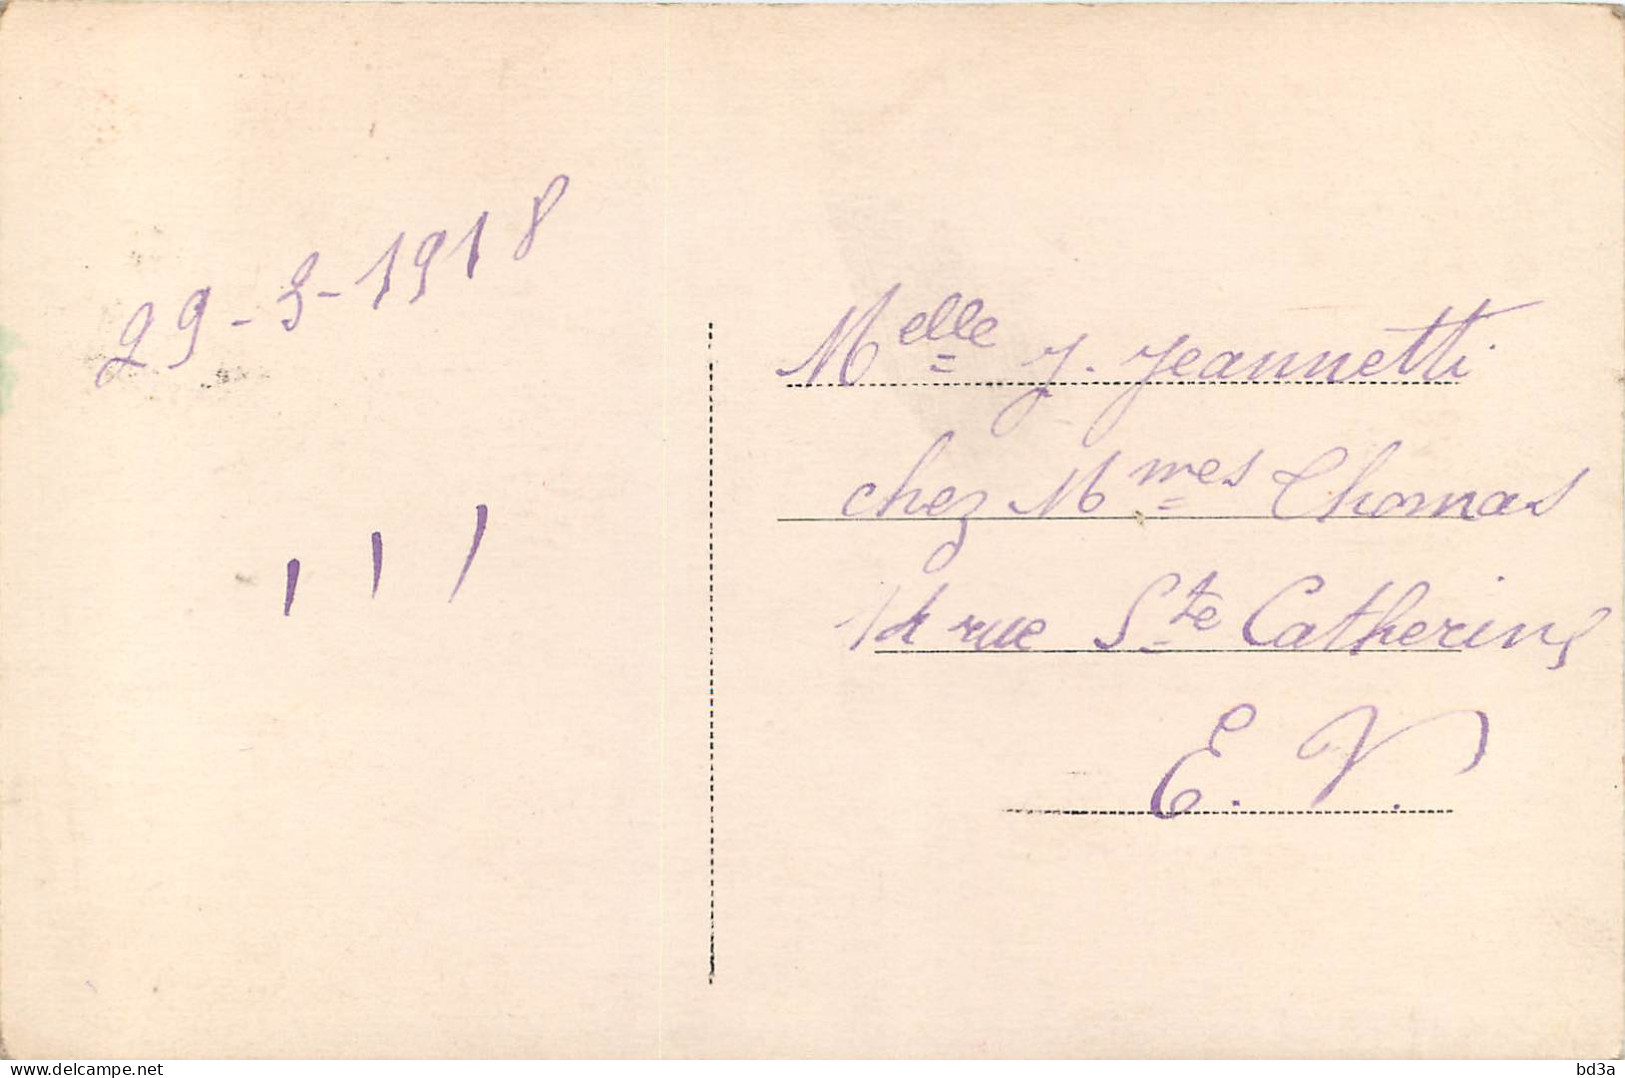 29-3-1918
, , ,
Melle J. Jeannetti
chez Mmes Thomas
14 rue Ste Catherine
E. V.
delcampe.net
bd3a